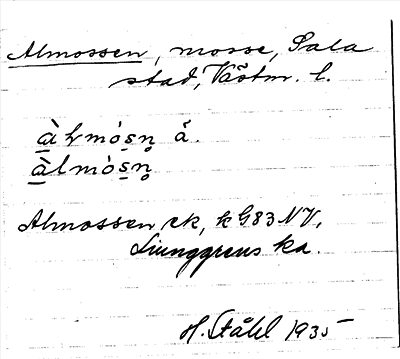 Almossen, mosse, Sala
stad, Västm. l.
àl̵mósn̥ å.
àlmósn̥
Almossen ek, k G83 NV,
Ljunggrens ka.
H. Ståhl 1935